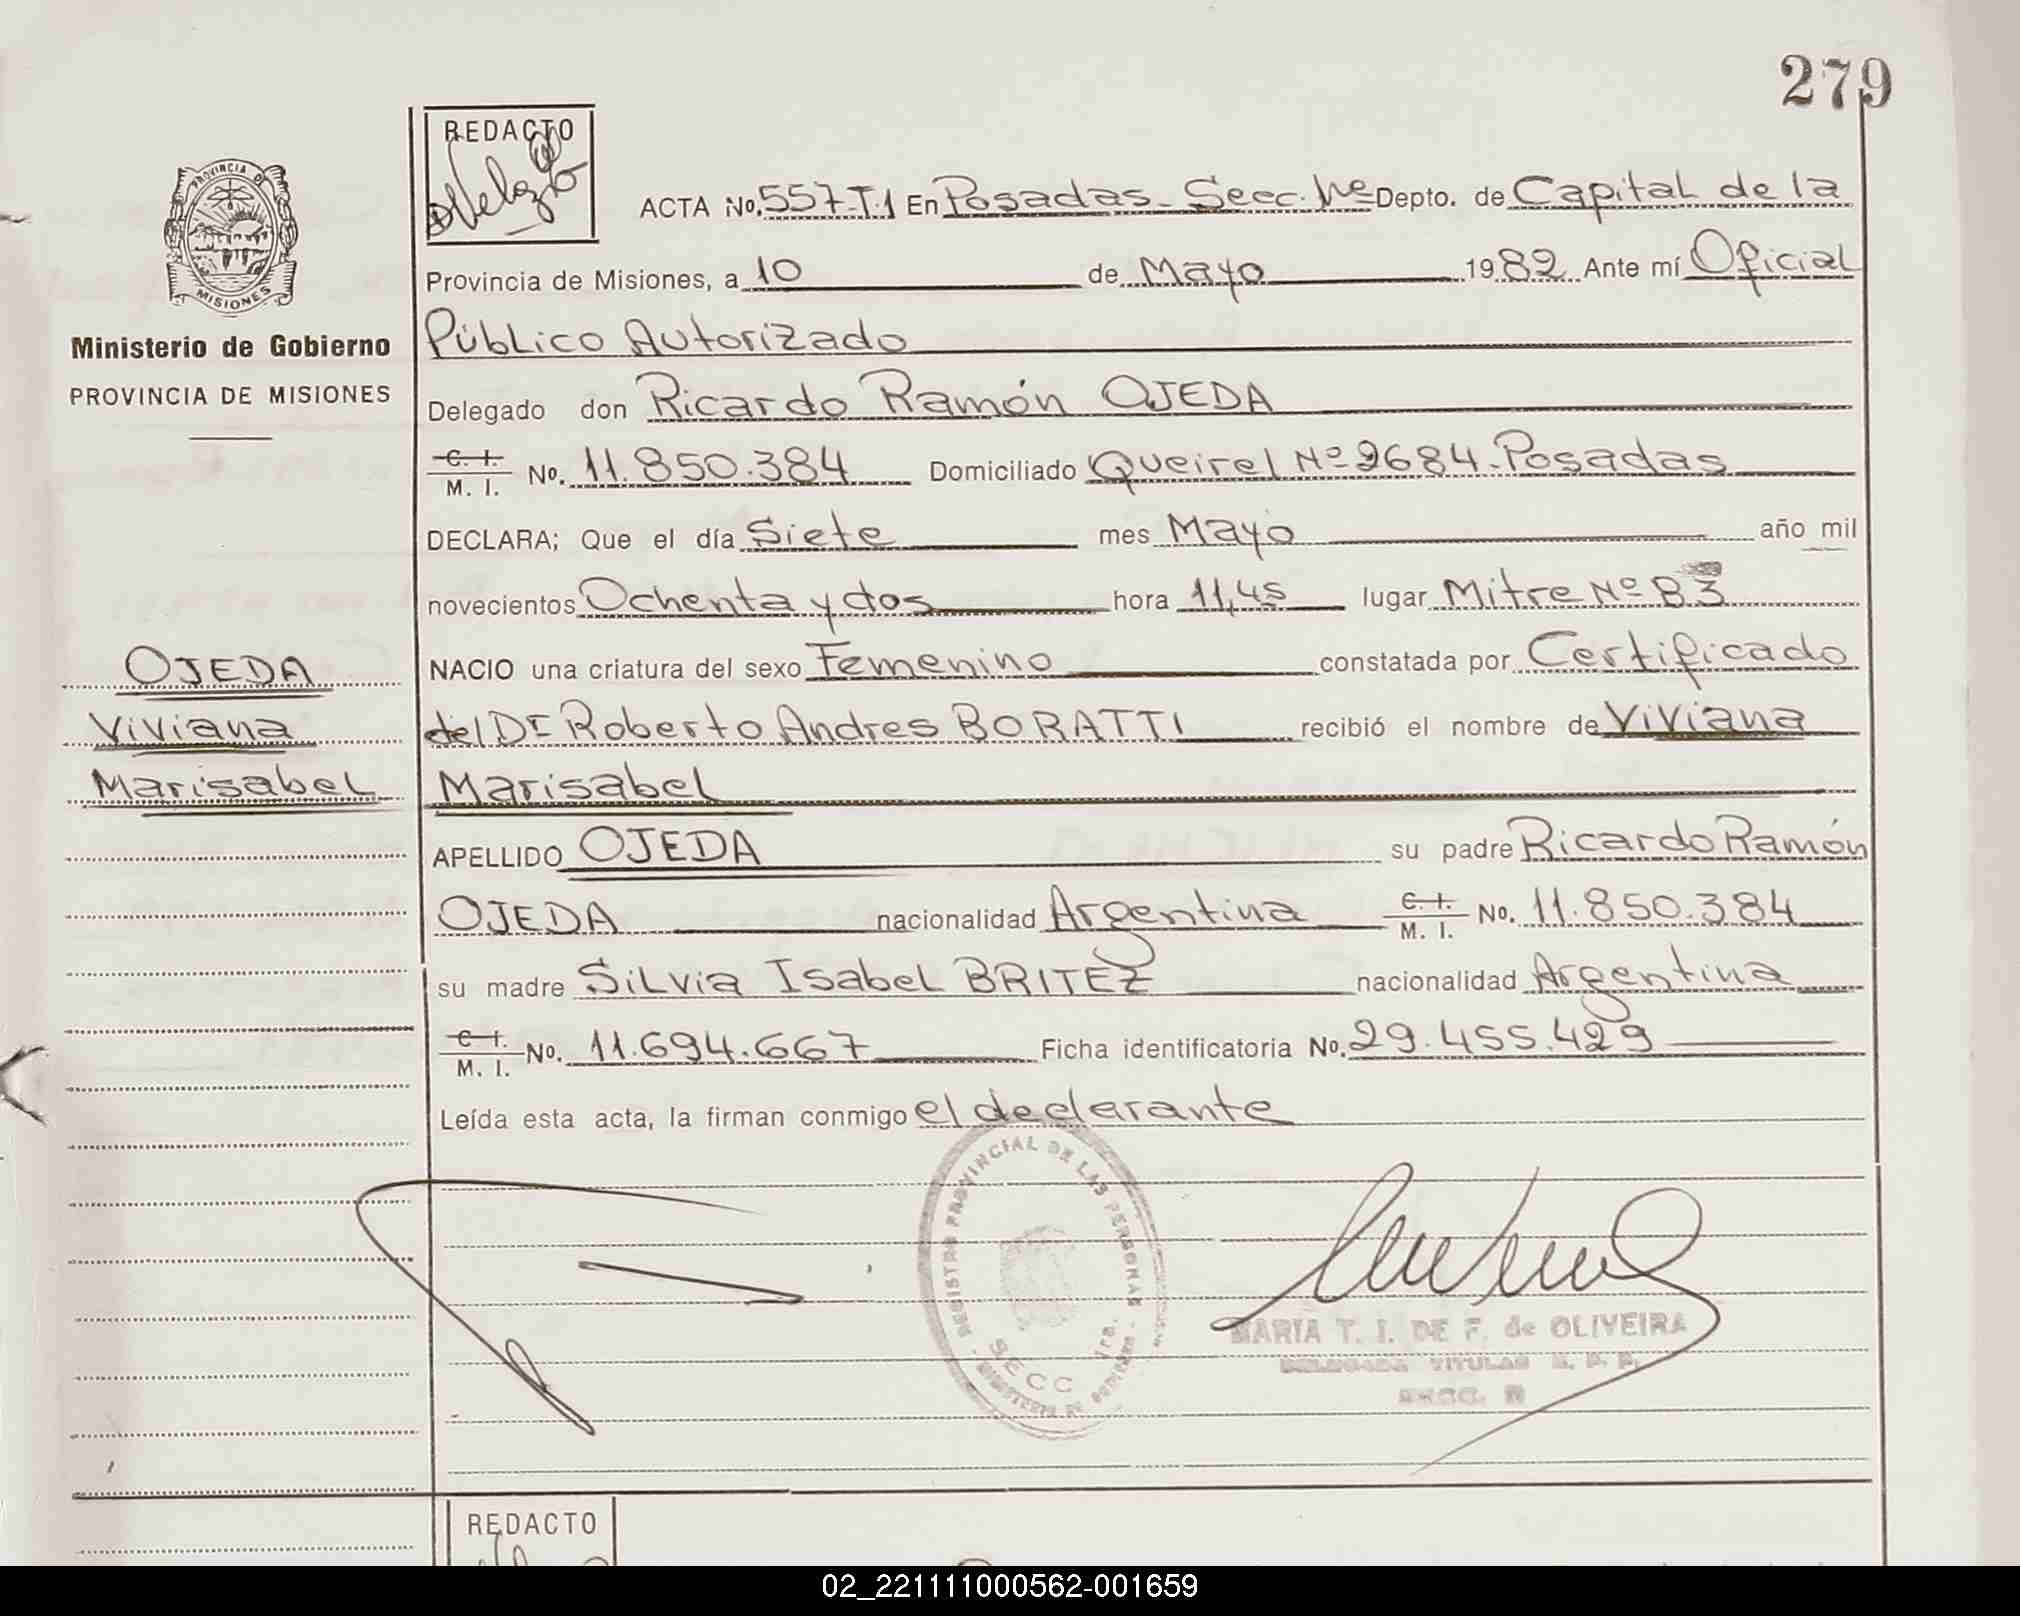 279
REDACTO
ACTA No. 557-T.1 En Posadas - Secc. 1ra Depto. de Capital de la
Provincia de Misiones, a 10 de Mayo 1982 Ante mí Oficial
Público Autorizado
Delegado don Ricardo Ramón OJEDA
C. I. M. I. No. 11.850.384 Domiciliado Queirel Nº 2684 - Posadas
DECLARA; Que el día Siete mes Mayo año mil
novecientos Ochenta y dos hora 11,45 lugar Mitre Nº 83
NACIO una criatura del sexo Femenino constatada por Certificado
del Dr Roberto Andres BORATTI recibió el nombre de Viviana
Marisabel
APELLIDO OJEDA su padre Ricardo Ramón
OJEDA nacionalidad Argentina C. I. M. I. No. 11.850.384
su madre Silvia Isabel BRITEZ nacionalidad Argentina
C. I. M. I. No. 11.694.667 Ficha identificatoria No. 29.455.429
Leída esta acta, la firman conmigo el declarante
PROVINCIA DE
MISIONES
Ministerio de Gobierno
PROVINCIA DE MISIONES
OJEDA
Viviana
Marisabel
REGISTRO PROVINCIAL DE LAS PERSONAS
SECC 1ra.
MARIA T. I. DE F. de OLIVEIRA
DELEGADA TITULAR R. P. P.
SECC.
REDACTO
02_221111000562-001659